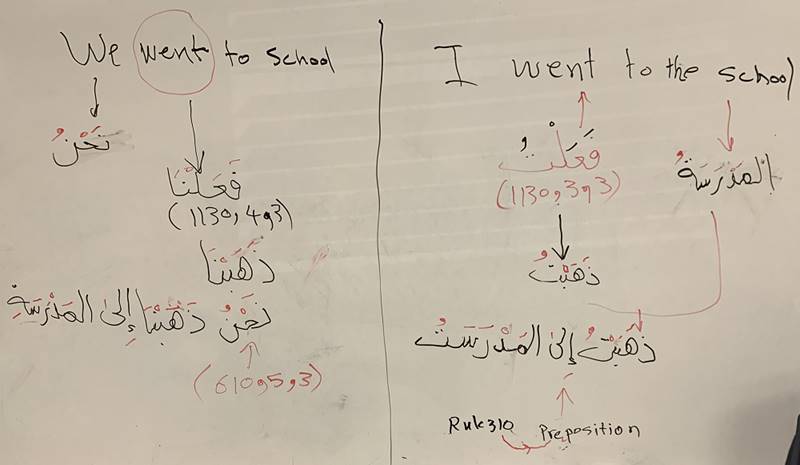 We went to school
نَحْنُ
فَعَلْنَا
(1130,4,3)
ذَهَبْنَا
نَحْنُ ذَهَبْنَا إِلىٰ المَدْرَسَةِ
(610,5,3)
I went to the school
فَعَلْتُ
(1130,3,3)
المَدْرَسَةُ
ذَهَبْتُ
ذَهَبْتُ إِلىٰ المَدْرَسَتُ
Rule310 Preposition